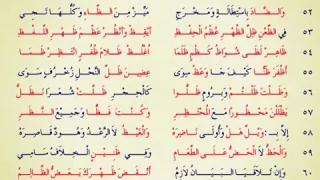 ٥٢ وَالضَّادَ بِاسْتِطَالَةٍ وَمَخْرَجِ مَيِّزْ مِنَ الظَّاءِ وَكُلُّهَا تَجِي
٥٣ فِي الظَّعْنِ ظِلَّ الظُّهْرِ عُظْمِ الْحِفْظِ أَيْقِظْ وَأَنْظِرْ عَظْمَ ظَهْرِ اللَّفْظِ
٥٤ ظَاهِرْ لَظَى شُوَاظِ كَظْمٍ ظَلَمَا اُغْلُظْ ظَلَامَ ظُفْرٍ انْتَظِرْ ظَمَا
٥٥ أَظْفَرَ ظَنًّا كَيْفَ جَا وَعَظْ سِوَى عِضِينَ ظَلَّ النَّحْلِ زُخْرُفٍ سَوَى
٥٦ وَظَلْتَ ظَلْتُمْ وَبِرُومٍ ظَلُّوا كَالْحِجْرِ ظَلَّتْ شُعَرَا نَظَلُّ
٥٧ يَظْلَلْنَ مَحْظُورًا مَعَ الْمُحْتَظِرِ وَكُنْتَ فَظًّا وَجَمِيعِ النَّظَرِ
٥٨ إِلَّا بِـ: وَيْلٌ هَلْ وَأُولَى نَاضِرَهْ وَالْغَيْظِ لَا الرَّعْدُ وَهُودٌ قَاصِرَهْ
٥٩ وَالْحَظُّ لَا الْحَضُّ عَلَى الطَّعَامِ وَفِي ظَنِينٍ الْخِلَافُ سَامِي
٦٠ وَإِنْ تَلَاقَيَا الْبَيَانُ لَازِمُ أَنْقَضَ ظَهْرَكَ يَعَضُّ الظَّالِمُ